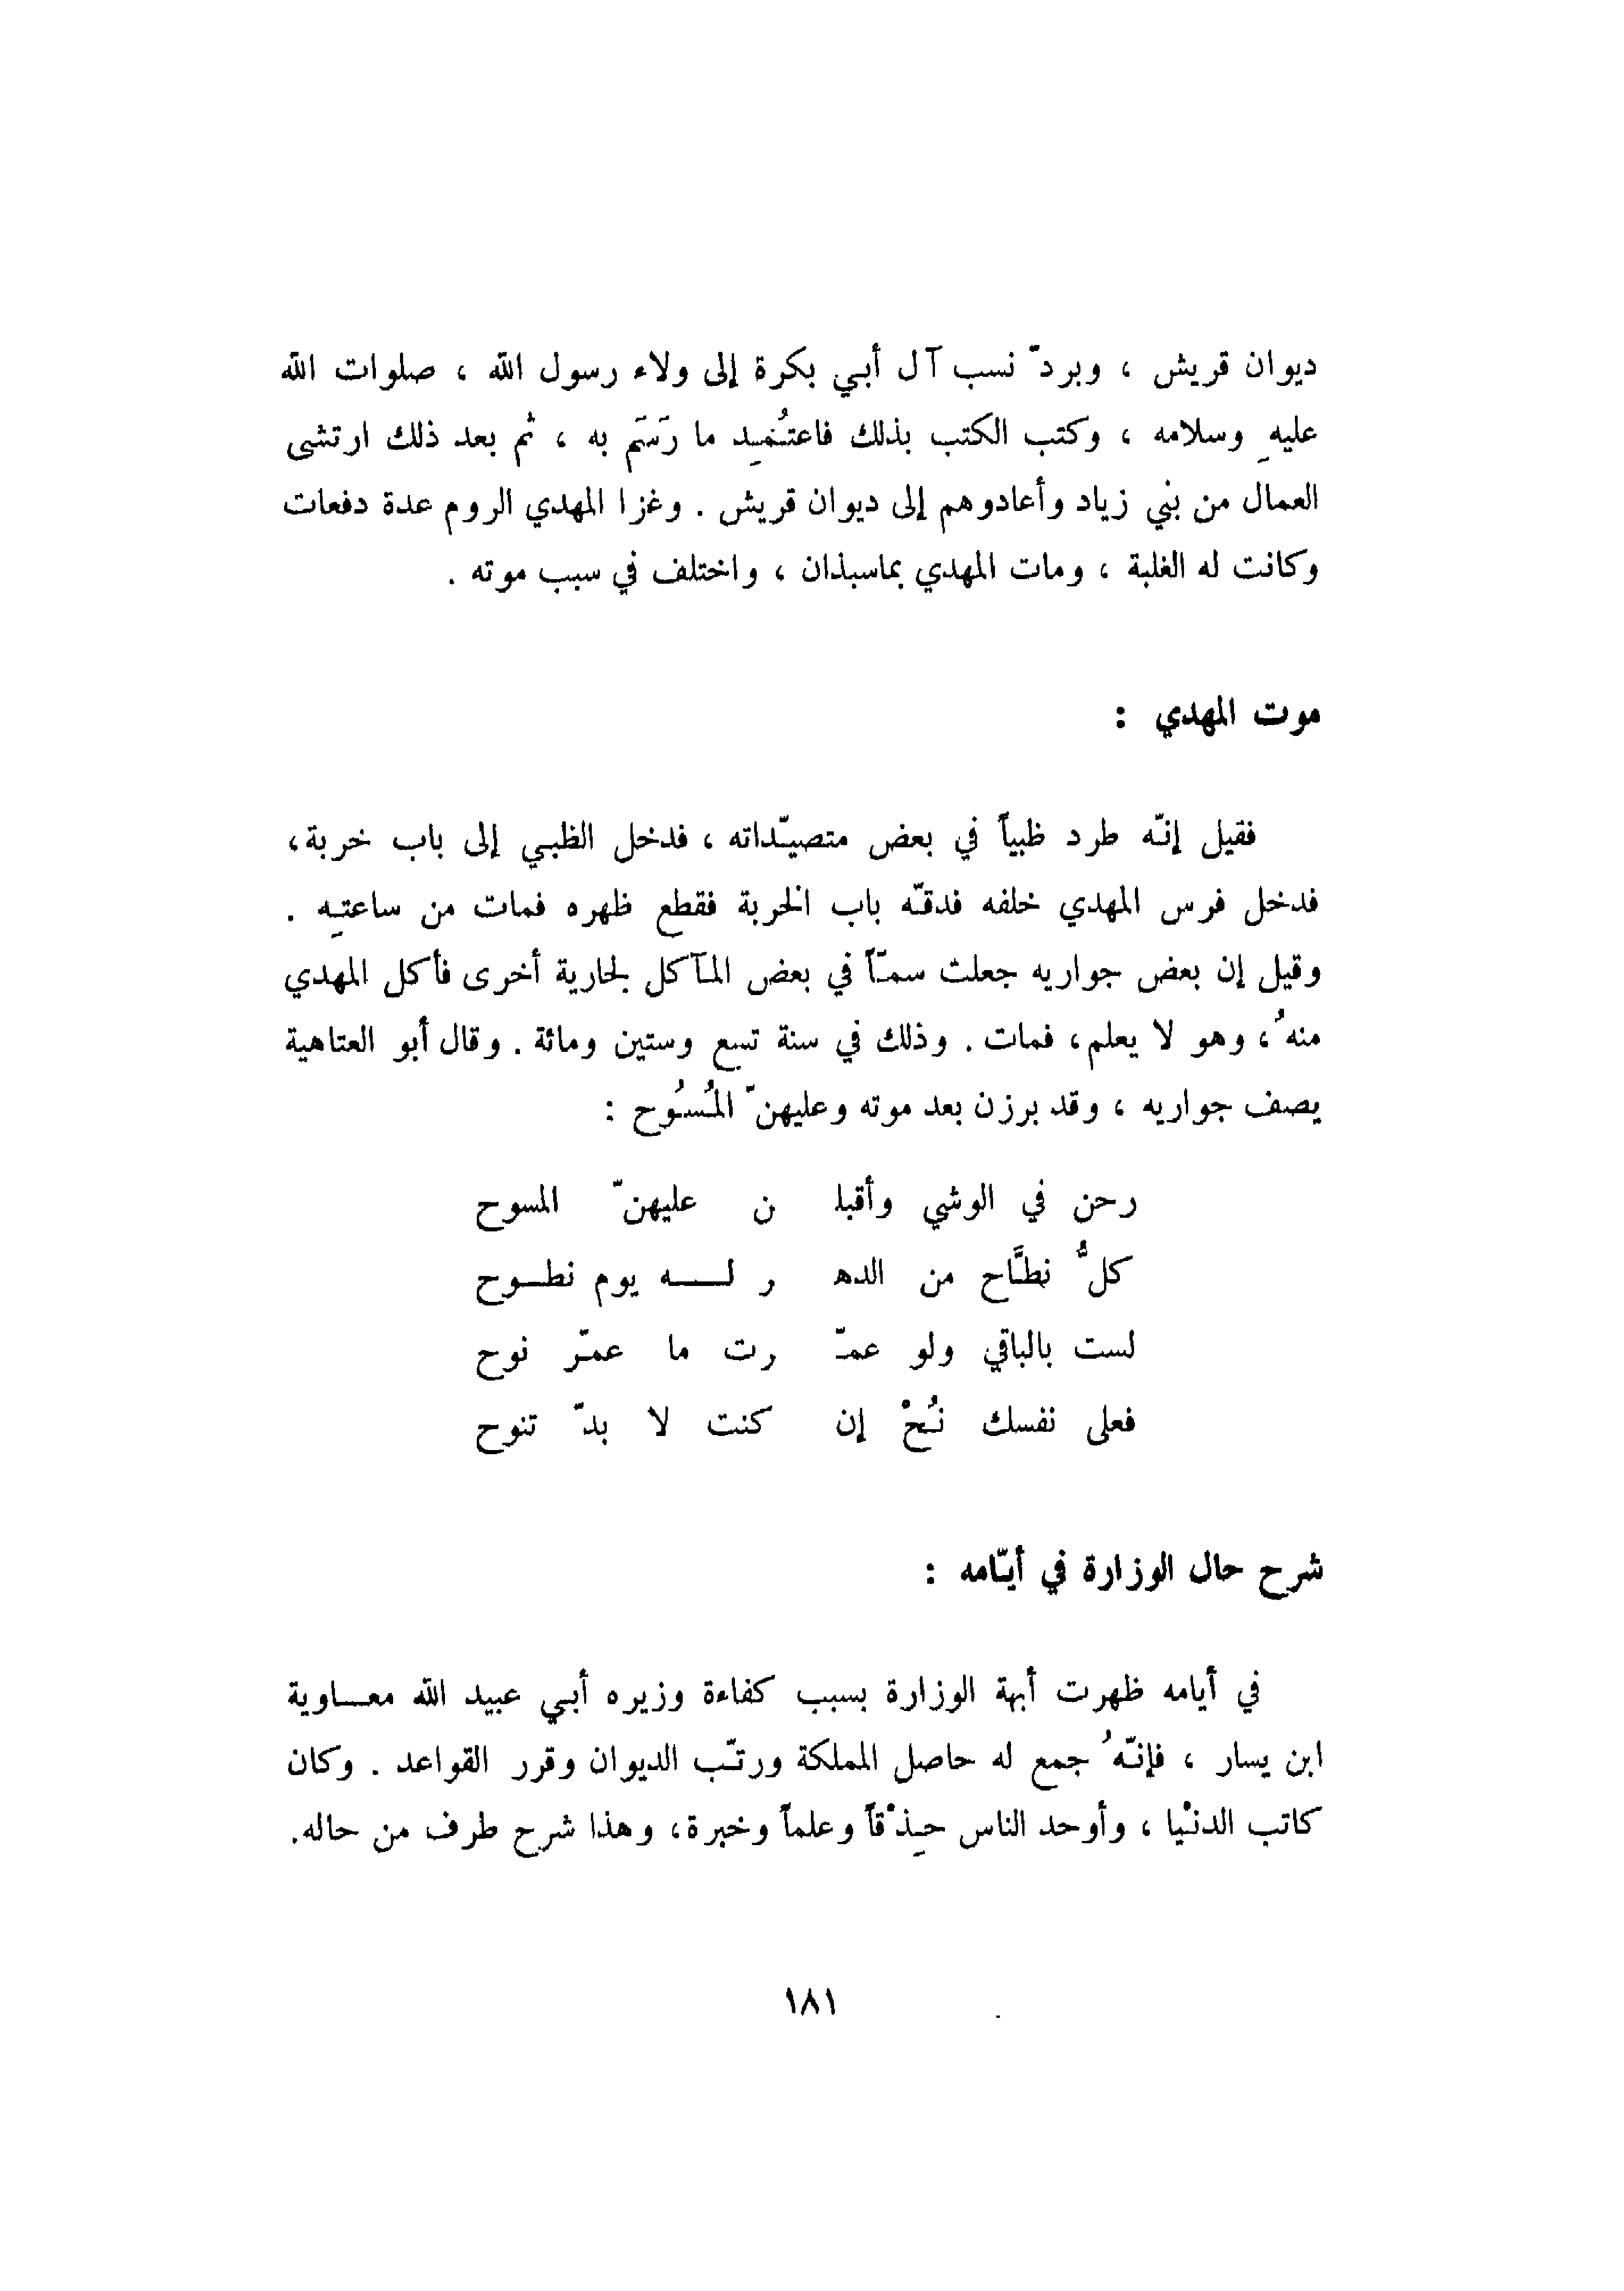 ديوان قريش ، وبردّ نسب آل أبي بكرة إلى ولاء رسول الله ، صلوات الله
عليهِ وسلامه ، وكتب الكتب بذلك فاعتُمِد ما رَسَم به ، ثم بعد ذلك ارتشى
العمال من بني زياد وأعادوهم إلى ديوان قريش . وغزا المهدي الروم عدة دفعات
وكانت له الغلبة ، ومات المهدي بماسبذان ، واختلف في سبب موته .
موت المهدي :
فقيل إنّه طرد ظبياً في بعض متصيّداته ، فدخل الظبي إلى باب خربة،
فدخل فرس المهدي خلفه فدقّه باب الخربة فقطع ظهره فمات من ساعتهِ .
وقيل إن بعض جواريه جعلت سمّاً في بعض المآكل لجارية أخرى فأكل المهدي
منهُ، وهو لا يعلم، فمات . وذلك في سنة تسع وستين ومائة . وقال أبو العتاهية
يصف جواريه ، وقد برزن بعد موته وعليهنّ المُسُوح :
رحن في الوشي وأقبلـ ن عليهنّ المسوح
كلُّ نطَّاح من الدهـ ر لـــه يوم نطـوح
لست بالباقي ولو عمّـ رت ما عمّر نوح
فعلى نفسك نُحْ إن كنت لا بدّ تنوح
شرح حال الوزارة في أيّامه :
في أيامه ظهرت أبهة الوزارة بسبب كفاءة وزيره أبي عبيد الله معــاوية
ابن يسار ، فإنّهُ جمع له حاصل المملكة ورتّب الديوان وقرر القواعد . وكان
كاتب الدنْيا ، وأوحد الناس حِذْقاً وعلماً وخبرة، وهذا شرح طرف من حاله.
١٨١